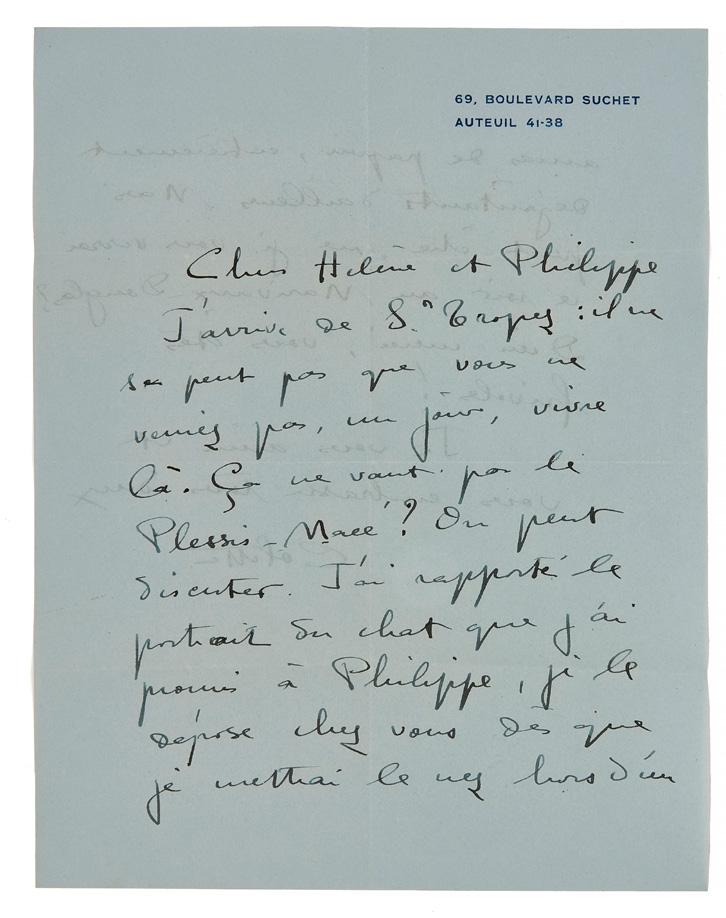 69, BOULEVARD SUCHET
AUTEUIL 41-38
Chers Hélène et Philippe
J'arrive de St Tropez : il ne
se peut pas que vous ne
veniez pas, un jour, vivre
là. Ça ne vaut pas le
Plessis-Macé ? On peut
discuter. J'ai rapporté le
portrait du chat que j'ai
promis à Philippe, je le
dépose chez vous dès que
je mettrai le nez hors d'un